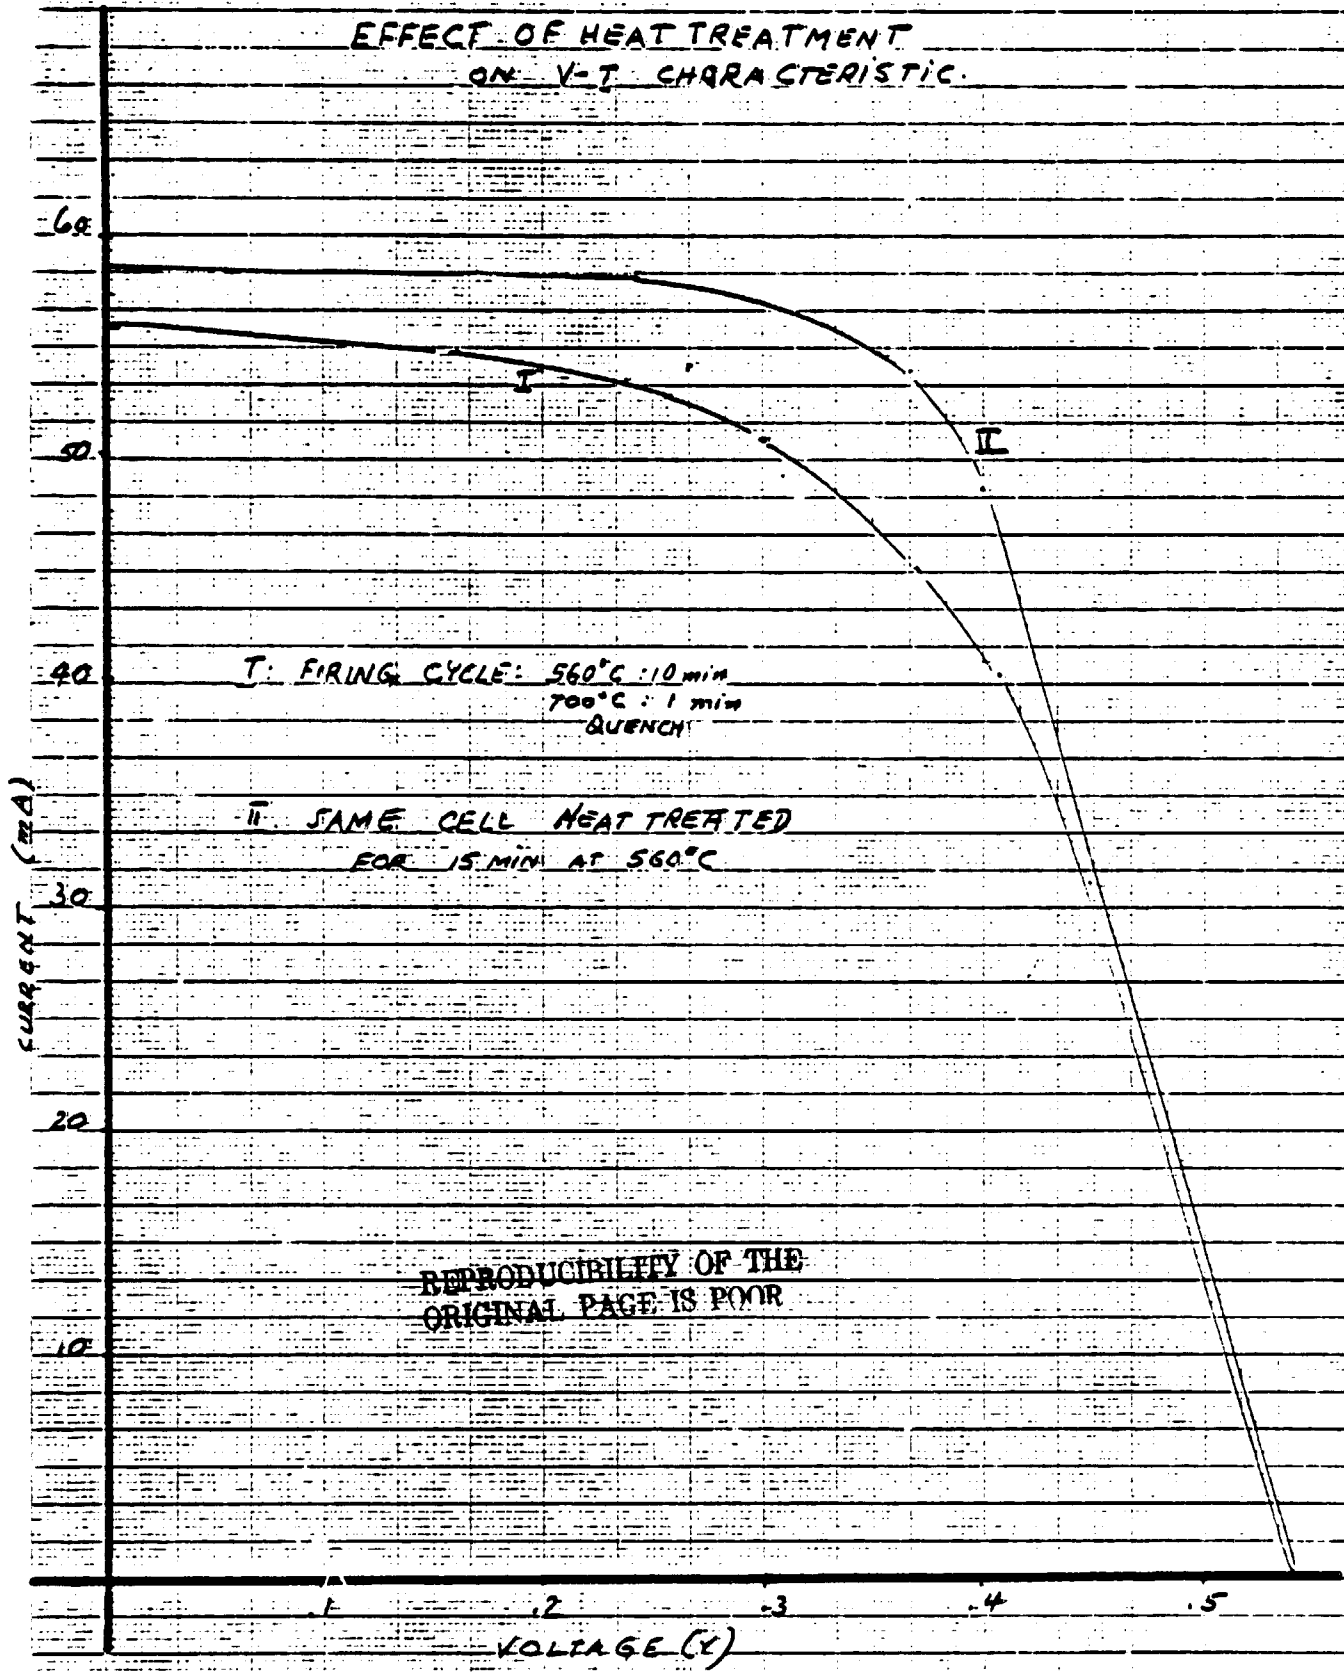 EFFECT OF HEAT TREATMENT
ON V-I CHARACTERISTIC.
60
I
50
II
40
I: FIRING CYCLE: 560°C : 10 min
700°C : 1 min
QUENCH
II. SAME CELL HEAT TREATED
FOR 15 MIN AT 560°C
CURRENT (mA)
30
20
REPRODUCIBILITY OF THE
ORIGINAL PAGE IS POOR
10
.1 .2 .3 .4 .5
VOLTAGE (V)